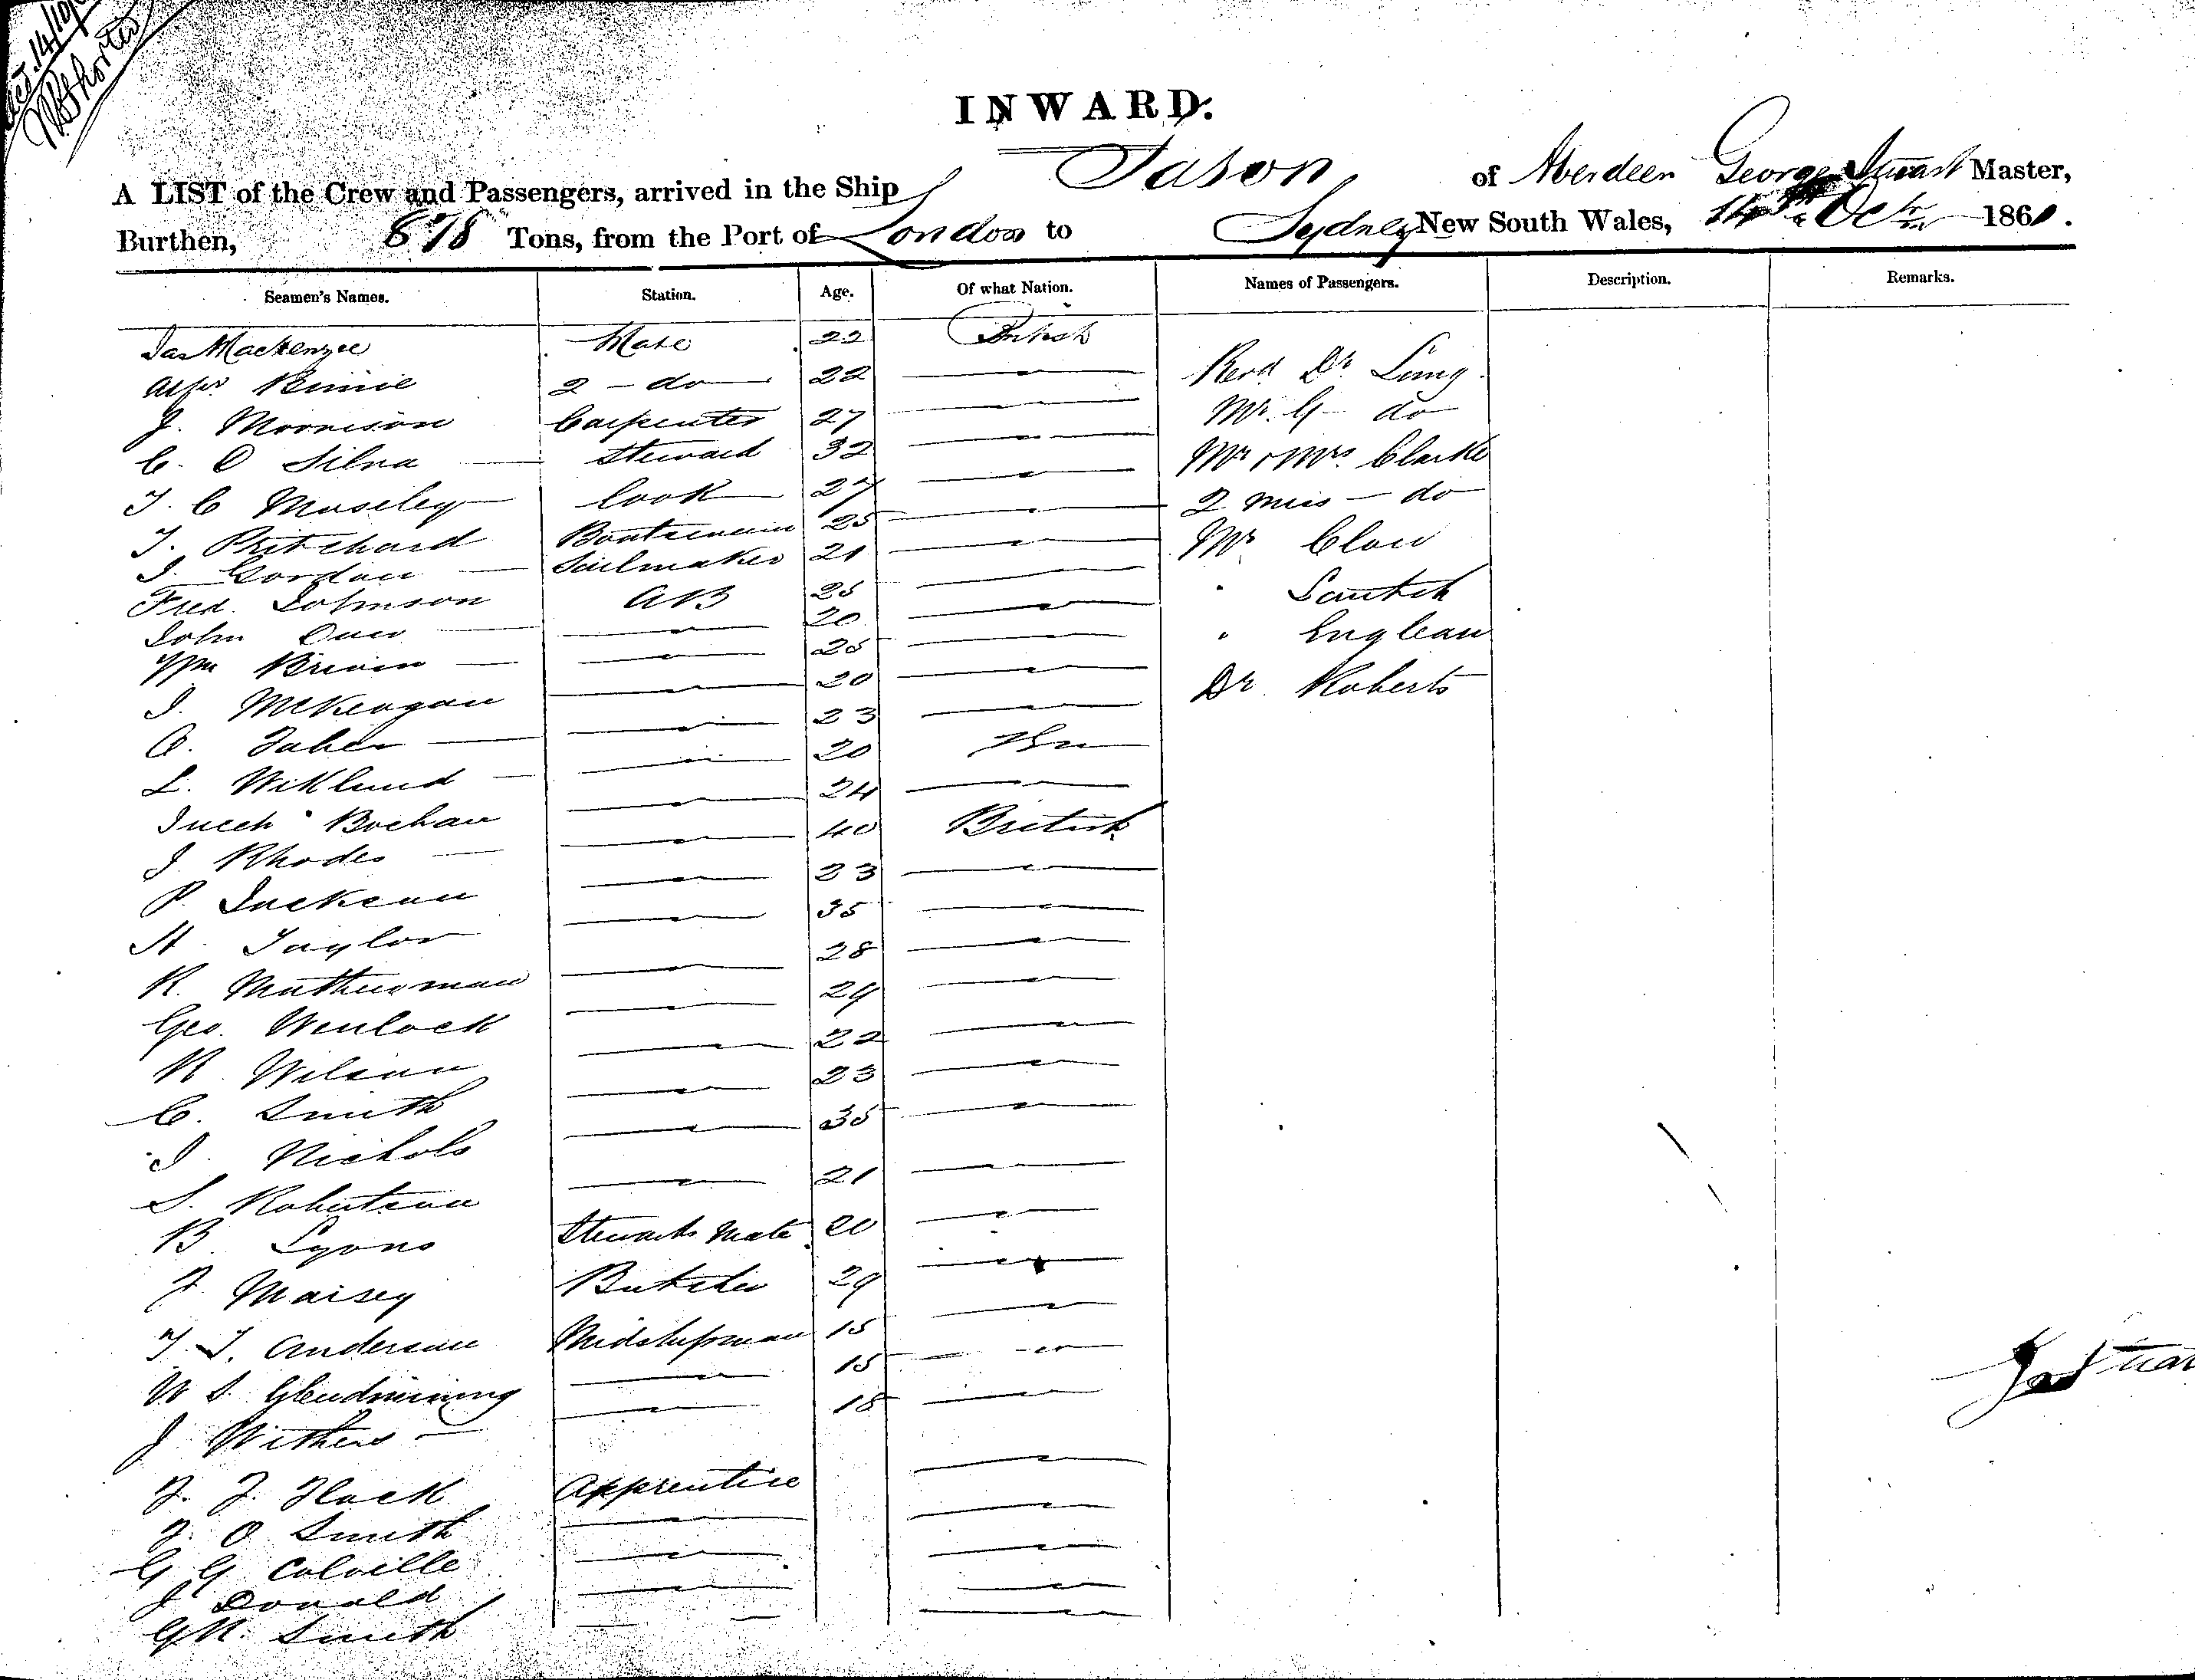 INWARD.
A LIST of the Crew and Passengers, arrived in the Ship Jason of Aberdeen George Stuart Master,
Burthen, 878 Tons, from the Port of London to Sydney New South Wales, 14th Octr 1861.
Seamen's Names. Station. Age. Of what Nation. Names of Passengers. Description. Remarks.
Jas Mackenzie Mate 22 British
Alfr. Binnie 2 - do 22 Revd Dr Lang
J. Morrison Carpenter 27 Mr. G - do
C. D Silva Steward 32 Mr & Mrs. Clarke
T. C Moseley Cook 27 2 Miss - do
T. Pritchard Boatswain 25 Mr
J. Gordon Sailmaker 21
Fred. Johnson AB 25
John 20
Wm Brown 25
J. McKeogan 20 Dr. Roberts
A. 23
L. Wiklund 20
Buchan 24
J Rhodes 40 British
P. Jackson 23
H. Taylor 35
R. 28
Geo. Wenlock 29
R. Wilson 22
C. Smith 23
J. Nichols 35
S. Robertson 21
B. Lyons Stewards Mate 20
F. Maisey Butcher 29
T. J. Anderson Midshipman 15
W S. Glendinning 15
J Withers 18
F. J. Flack Apprentice
F. O Smith
G G Colville
J Donald
G R. Smith